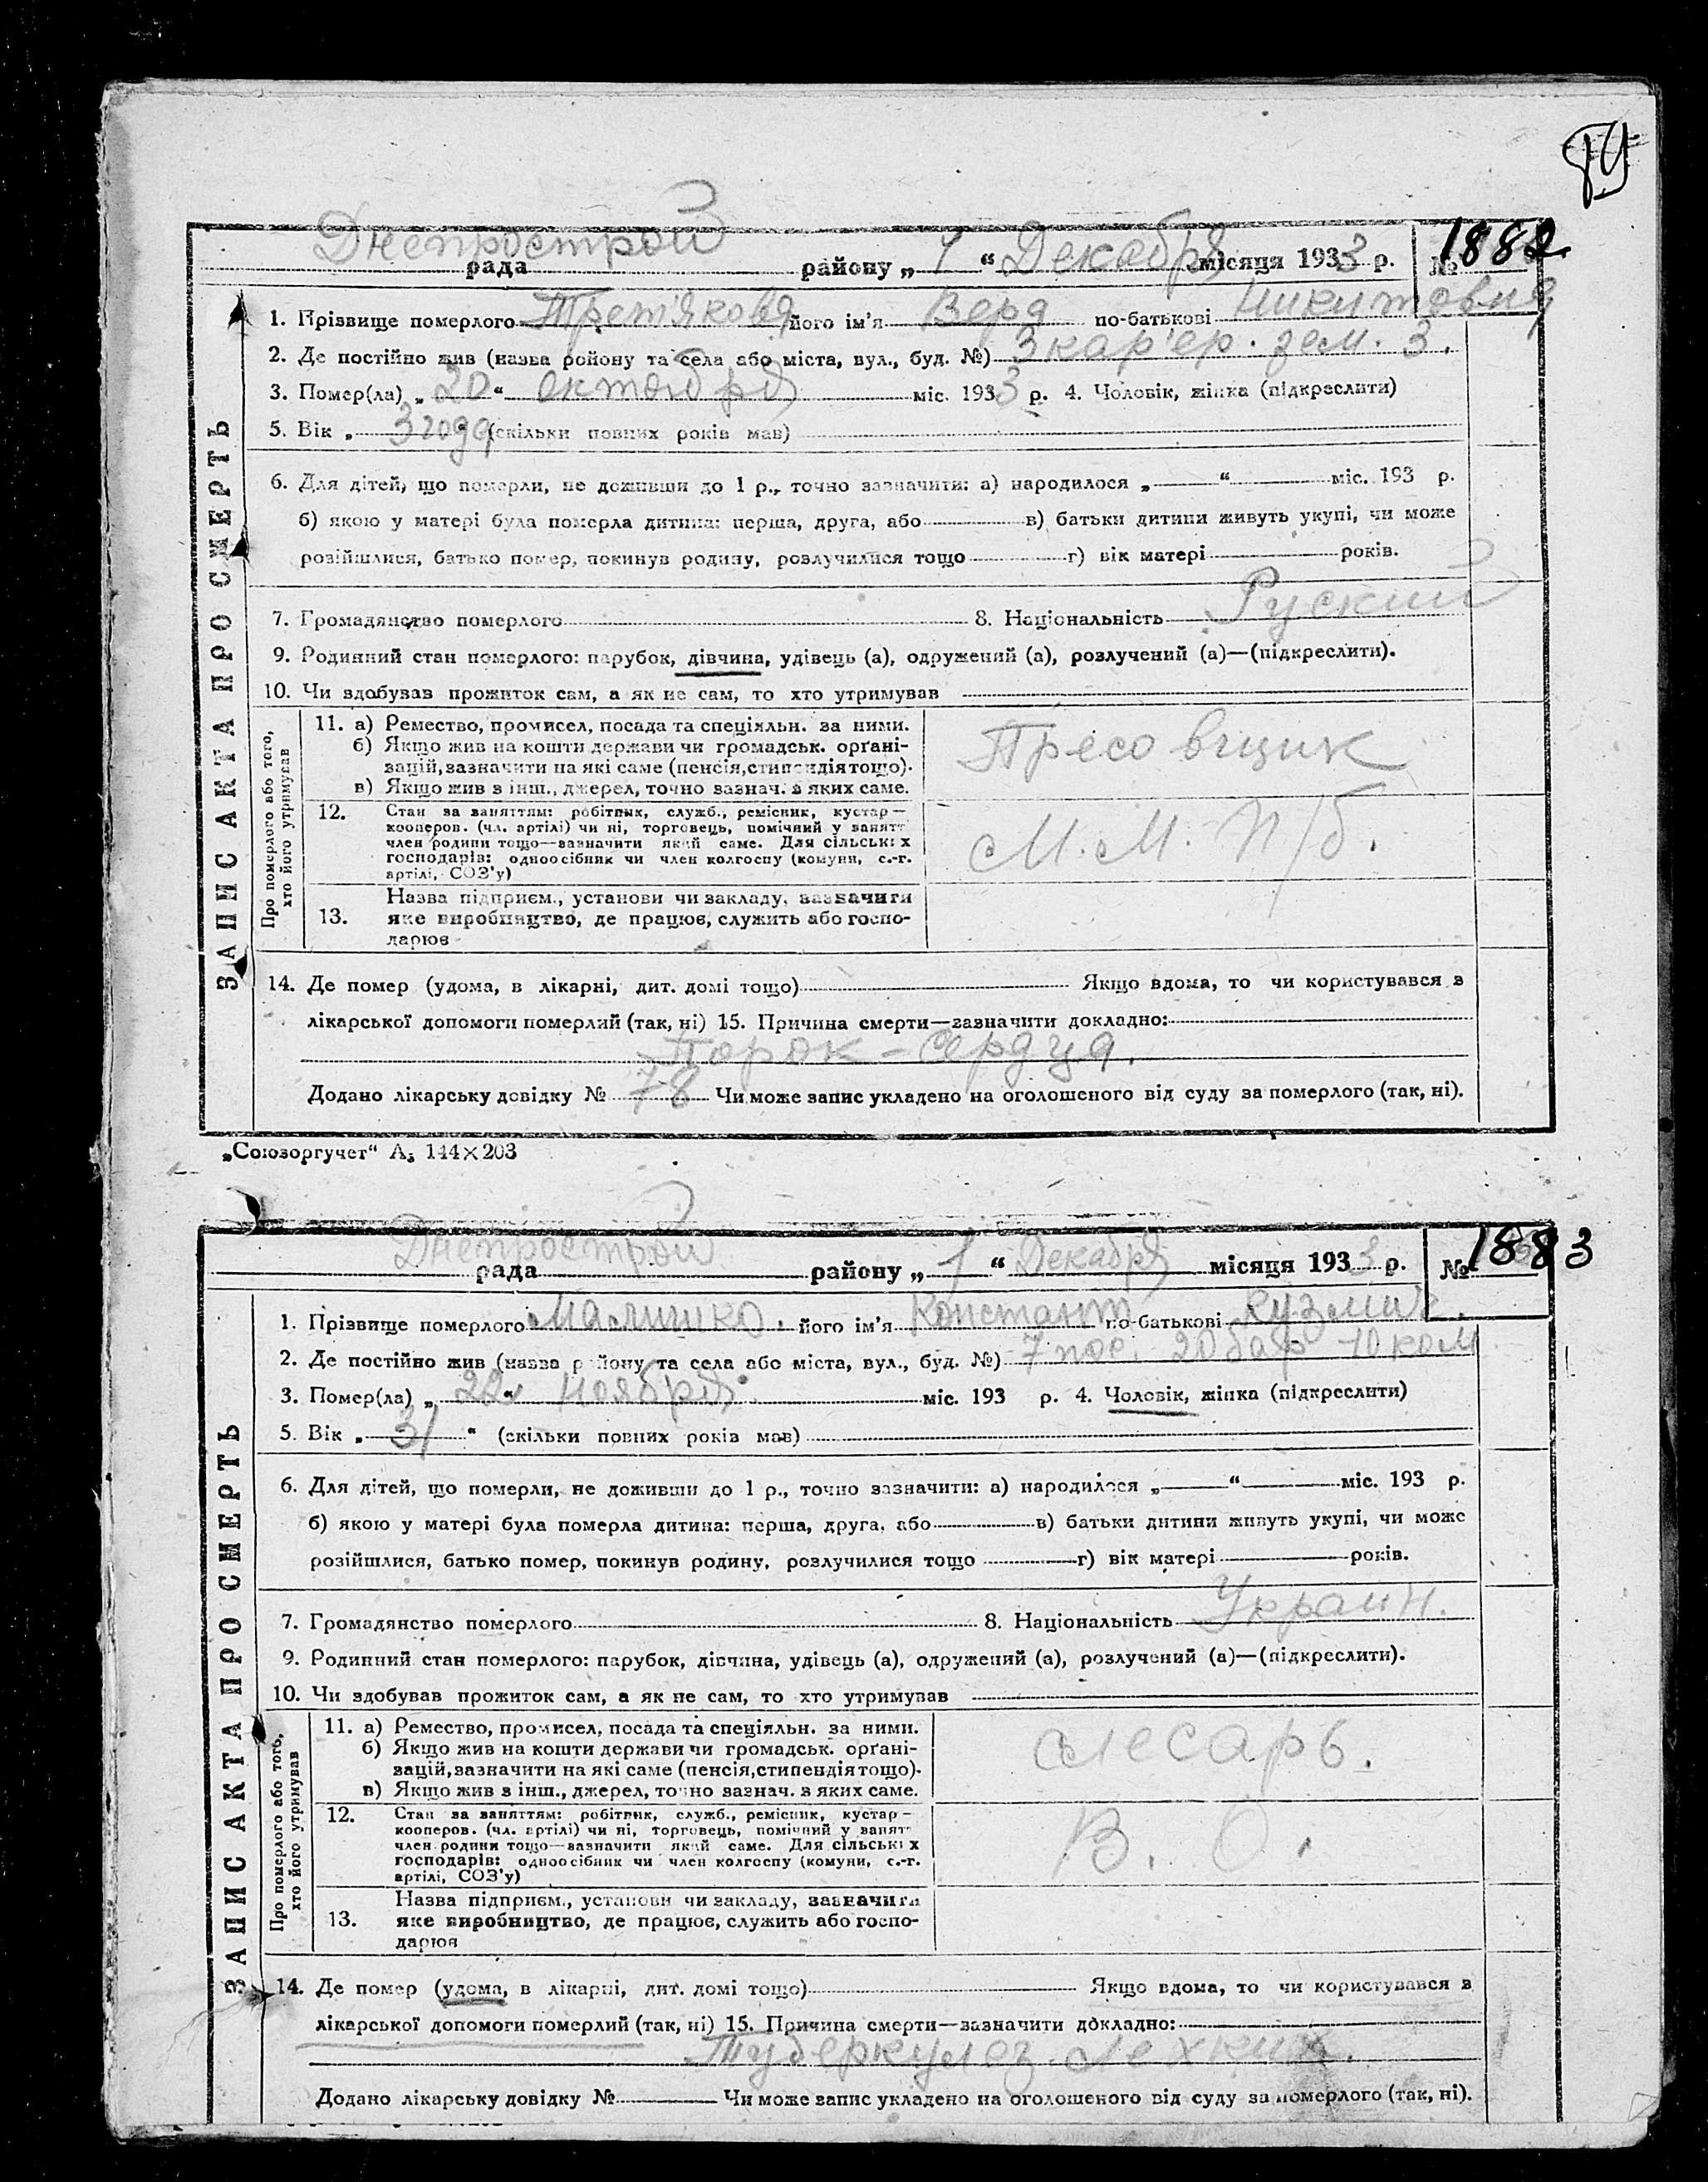 Днепрострой
рада району „1“ Декабря місяця 1933 р. № 1882
1. Прізвище померлого Трет'якова його ім'я Вера по-батькові Никитовна
2. Де постійно жив (назва району та села або міста, вул., буд. №) 3 кар'ер. зем. 3.
3. Помер(ла) „20“ октября міс. 1933 р. 4. Чоловік, жінка (підкреслити)
5. Вік „3 года“ (скільки повних років мав)
6. Для дітей, що померли, не доживши до 1 р., точно зазначити: а) народилося „ “ міс. 193 р.
б) якою у матері була померла дитина: перша, друга, або в) батьки дитини живуть укупі, чи може
розійшлися, батько помер, покинув родину, розлучилися тощо г) вік матері років.
7. Громадянство померлого 8. Національність Руский
9. Родинний стан померлого: парубок, дівчина, удівець (а), одружений (а), розлучений (а)—(підкреслити).
10. Чи здобував прожиток сам, а як не сам, то хто утримував
ЗАПИС АКТА ПРО СМЕРТЬ
Про померлого або того,
хто його утримував
11. а) Ремество, промисел, посада та спеціяльн. за ними.
б) Якщо жив на кошти держави чи громадськ. орґані-
зацій, зазначити на які саме (пенсія, стипендія тощо).
в) Якщо жив з інш., джерел, точно зазнач. з яких саме.
Пресовщик
12. Стан за заняттям: робітник, служб., ремісник, кустар—
кооперов. (чл. артілі) чи ні, торговець, помічний у занятт
член родини тощо—зазначити який саме. Для сільських
господарів: одноосібник чи член колгоспу (комуни, с.-г.
артілі, СОЗ'у)
М. М. П/б.
Назва підприєм., установи чи закладу, зазначити
13. яке виробництво, де працює, служить або госпо-
дарює
14. Де помер (удома, в лікарні, дит. домі тощо) Якщо вдома, то чи користувався з
лікарської допомоги померлий (так, ні) 15. Причина смерти—зазначити докладно:
Порок-сердца.
Додано лікарську довідку № 78 Чи може запис укладено на оголошеного від суду за померлого (так, ні).
„Союзоргучет“ А₅ 144×203
Днепрострой
рада району „1“ Декабря місяця 1933 р. № 1883
1. Прізвище померлого Маличко. його ім'я Констант по-батькові Кузмич.
2. Де постійно жив (назва району та села або міста, вул., буд. №) 7 пос. 20 бар 10 ком
3. Помер(ла) „22“ ноября міс. 193 р. 4. Чоловік, жінка (підкреслити)
5. Вік „31“ (скільки повних років мав)
6. Для дітей, що померли, не доживши до 1 р., точно зазначити: а) народилося „ “ міс. 193 р.
б) якою у матері була померла дитина: перша, друга, або в) батьки дитини живуть укупі, чи може
розійшлися, батько помер, покинув родину, розлучилися тощо г) вік матері років.
7. Громадянство померлого 8. Національність Украин.
9. Родинний стан померлого: парубок, дівчина, удівець (а), одружений (а), розлучений (а)—(підкреслити).
10. Чи здобував прожиток сам, а як не сам, то хто утримував
ЗАПИС АКТА ПРО СМЕРТЬ
Про померлого або того,
хто його утримував
11. а) Ремество, промисел, посада та спеціяльн. за ними.
б) Якщо жив на кошти держави чи громадськ. орґані-
зацій, зазначити на які саме (пенсія, стипендія тощо).
в) Якщо жив з інш., джерел, точно зазнач. з яких саме.
слесарь.
12. Стан за заняттям: робітник, служб., ремісник, кустар—
кооперов. (чл. артілі) чи ні, торговець, помічний у занятт
член родини тощо—зазначити який саме. Для сільських
господарів: одноосібник чи член колгоспу (комуни, с.-г.
артілі, СОЗ'у)
В. О.
Назва підприєм., установи чи закладу, зазначити
13. яке виробництво, де працює, служить або госпо-
дарює
14. Де помер (удома, в лікарні, дит. домі тощо) Якщо вдома, то чи користувався з
лікарської допомоги померлий (так, ні) 15. Причина смерти—зазначити докладно:
Туберкулез лехких.
Додано лікарську довідку № Чи може запис укладено на оголошеного від суду за померлого (так, ні).